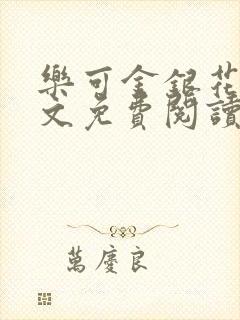 樂可金銀花
文免費閱讀
萬慶良